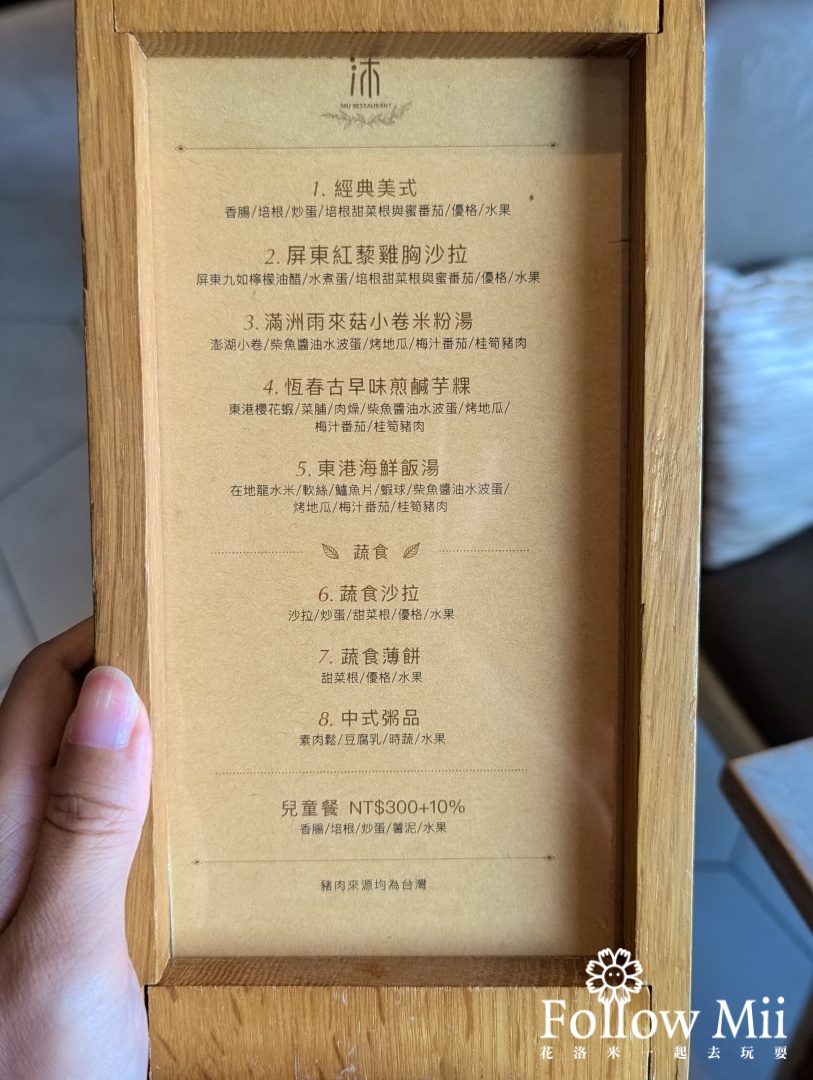 沐
MU RESTAURANT
1. 經典美式
香腸/培根/炒蛋/培根甜菜根與蜜番茄/優格/水果
2. 屏東紅藜雞胸沙拉
屏東九如檸檬油醋/水煮蛋/培根甜菜根與蜜番茄/優格/水果
3. 滿洲雨來菇小卷米粉湯
澎湖小卷/柴魚醬油水波蛋/烤地瓜/梅汁番茄/桂筍豬肉
4. 恆春古早味煎鹹芋粿
東港櫻花蝦/菜脯/肉燥/柴魚醬油水波蛋/烤地瓜/
梅汁番茄/桂筍豬肉
5. 東港海鮮飯湯
在地龍水米/軟絲/鱸魚片/蝦球/柴魚醬油水波蛋/
烤地瓜/梅汁番茄/桂筍豬肉
蔬食
6. 蔬食沙拉
沙拉/炒蛋/甜菜根/優格/水果
7. 蔬食薄餅
甜菜根/優格/水果
8. 中式粥品
素肉鬆/豆腐乳/時蔬/水果
兒童餐 NT$300+10%
香腸/培根/炒蛋/薯泥/水果
豬肉來源均為台灣
Follow Mii
花洛米一起去玩耍